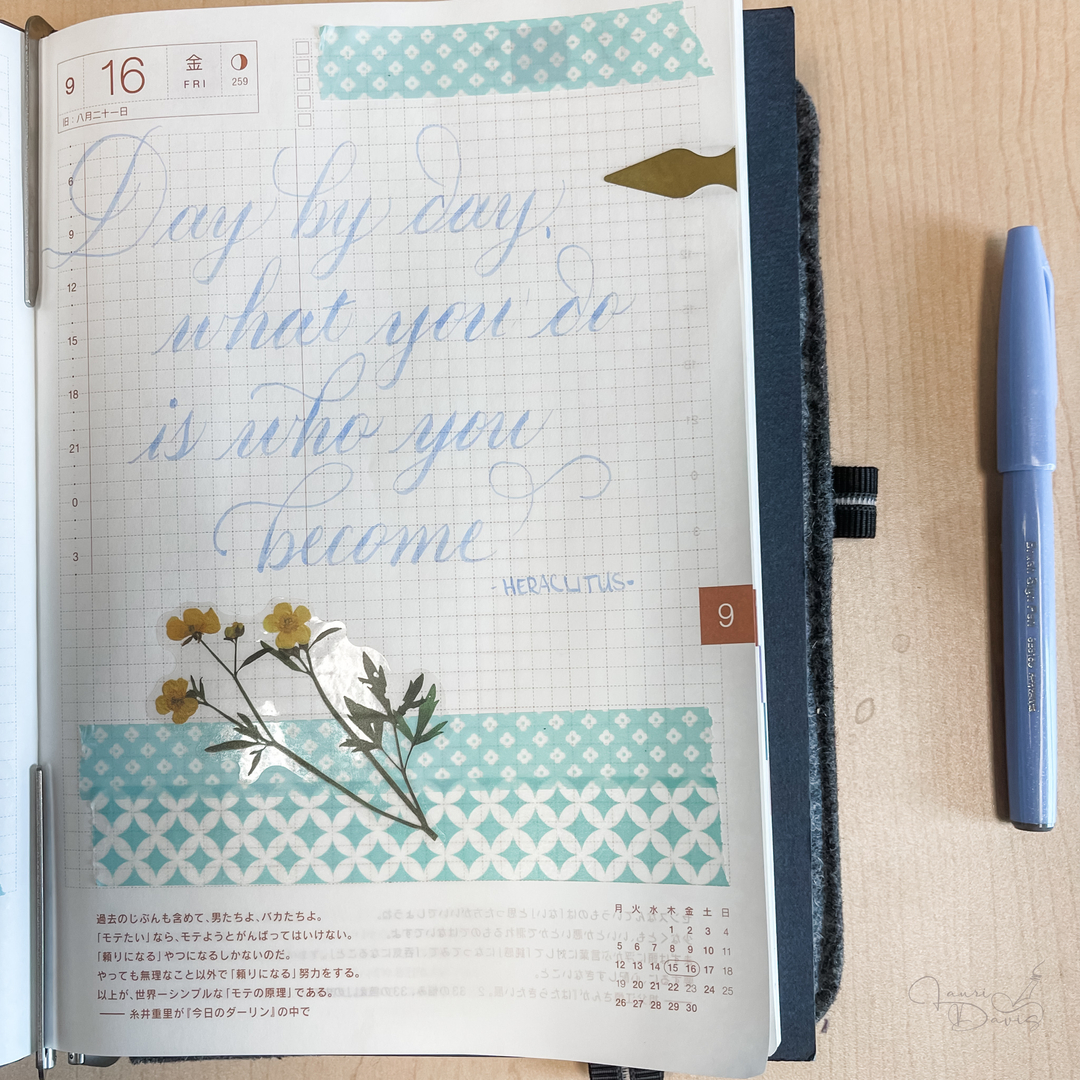 9 16 金 FRI 259
旧：八月二十一日
Day by day,
what you do
is who you
become
-HERACLITUS-
6
9
12
15
18
21
0
3
9
過去のじぶんも含めて、男たちよ、バカたちよ。
「モテたい」なら、モテようとがんばってはいけない。
「頼りになる」やつになるしかないのだ。
やっても無理なこと以外で「頼りになる」努力をする。
以上が、世界一シンプルな「モテの原理」である。
—— 糸井重里が『今日のダーリン』の中で
月 火 水 木 金 土 日
1 2 3 4
5 6 7 8 9 10 11
12 13 14 15 16 17 18
19 20 21 22 23 24 25
26 27 28 29 30
Lauri
Davis